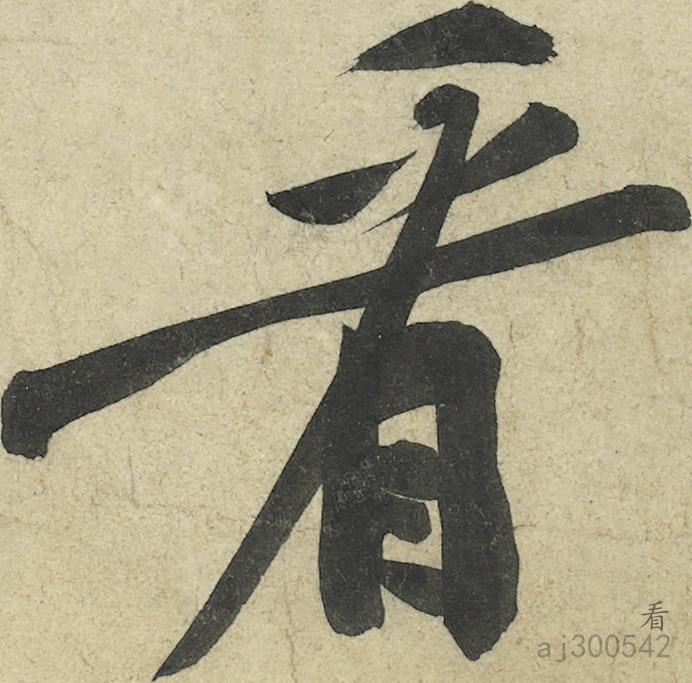 看
看
aj300542